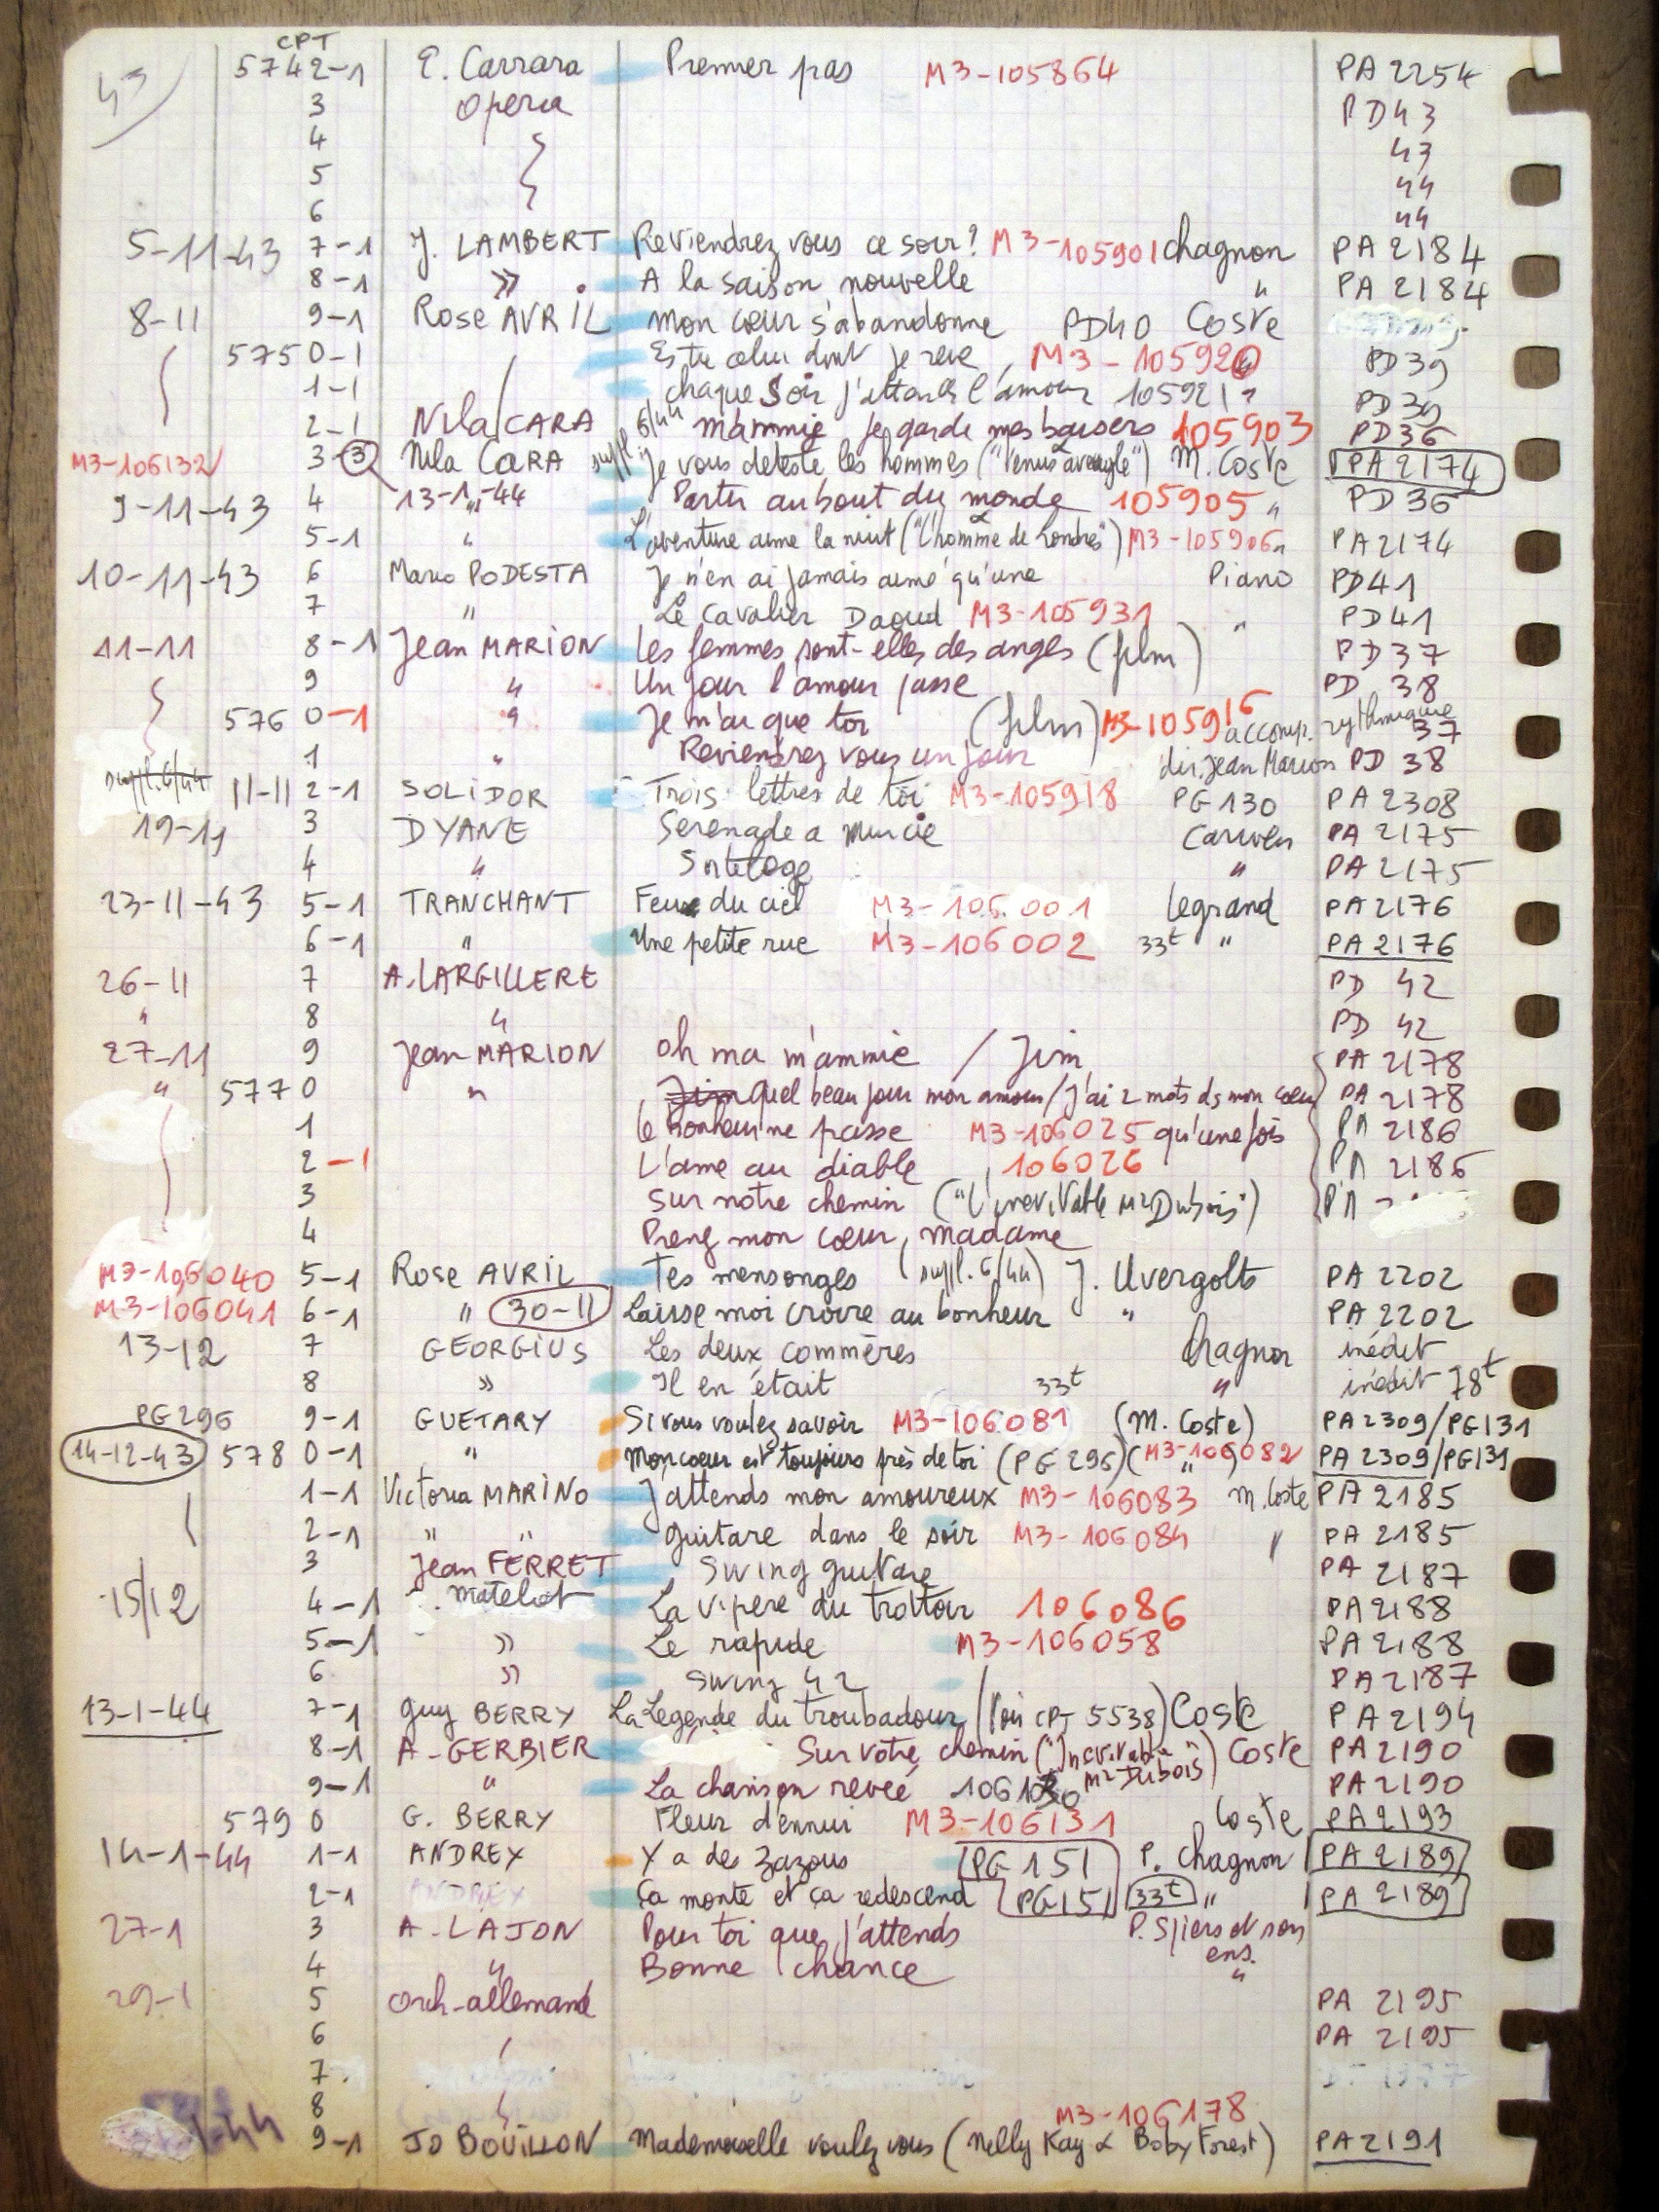 43
CPT
5742-1 E. Carrara Premier pas M3-105864 PA 2254
3 Opera PD43
4 43
5 44
6 44
5-11-43 7-1 J. LAMBERT Reviendrez vous ce soir? M3-105901 chagnon PA 2184
8-1 » A la saison nouvelle " PA 2184
8-11 9-1 Rose AVRIL Mon cœur s'abandonne PD40 Coste
575 0-1 Es tu celui dont je reve M3-10592 PD39
1-1 chaque Soir j'attends l'amour 105921? PD39
2-1 Nila CARA suppl. 6/44 mammie je garde mes baisers 105903 PD36
M3-106132 3-3 Nila CARA Je vous deteste les hommes ("Venus aveugle") M. Coste PA2174
9-11-43 4 13-1-44 " Partir au bout du monde 105905 " PD36
5-1 " L'aventure aime la nuit ("L'homme de Londres") M3-105906 " PA2174
10-11-43 6 Mario PODESTA Je n'en ai jamais aimé qu'une Piano PD41
7 " Le cavalier Daoud M3-105931 " PD41
11-11 8-1 Jean MARION Les femmes sont-elles des anges (film) PD37
9 " Un jour l'amour passe PD 38
576 0-1 " Je n'ai que toi (film) M3-105916 accomp. rythmique 37
1 " Reviendrez vous un jour dir. Jean Marion PD 38
suppl. 6/44 11-11 2-1 SOLIDOR Trois lettres de toi M3-105918 PG130 PA2308
19-11 3 DYANE Serenade a Murcie Cariven PA 2175
4 " Sortilege " PA2175
23-11-43 5-1 TRANCHANT Feux du ciel M3-106001 Legrand PA2176
6-1 " Une petite rue M3-106002 33t " PA2176
26-11 7 A. LARGILLERE PD 42
" 8 " PD 42
27-11 9 Jean MARION Oh ma m'ammie / Jim PA 2178
" 577 0 " Jim Quel beau jour mon amour / J'ai 2 mots ds mon cœur PA 2178
1 le bonheur ne passe M3-106025 qu'une fois PA 2186
2-1 L'ame au diable 106026 PA 2186
3 Sur notre chemin ("L'inevitable Mr Dubois") PA
4 Prenez mon cœur, madame
M3-106040 5-1 Rose AVRIL Tes mensonges (suppl. 6/44) J. Uvergolts PA2202
M3-106041 6-1 " 30-11 Laisse moi croire au bonheur " PA2202
13-12 7 GEORGIUS Les deux commères Chagnon inédit
8 » Il en était 33t " inédit 78t
PG296 9-1 GUETARY Si vous voulez savoir M3-106081 (M. Coste) PA2309/PG131
14-12-43 578 0-1 " Mon coeur est toujours près de toi (PG296) (M3-106082 ") PA2309/PG131
1-1 Victoria MARINO J'attends mon amoureux M3-106083 M. Coste PA2185
2-1 " " guitare dans le soir M3-106084 " PA2185
3 Jean FERRET Swing guitare PA 2187
15/12 4-1 matelot La vipere du trottoir 106086 PA2188
5-1 » Le rapide M3-106058 PA2188
6 » Swing 42 PA2187
13-1-44 7-1 Guy BERRY La Legende du troubadour (Voir CPT 5538) Coste PA2194
8-1 A. GERBIER Sur votre chemin ("Inevitable Mr Dubois") Coste PA2190
9-1 " La chanson revée 106130 PA2190
579 0 G. BERRY Fleur d'ennui M3-106131 Coste PA2193
14-1-44 1-1 ANDREX Y a des zazous PG151 P. Chagnon PA2189
2-1 ANDREX Ca monte et ça redescend PG151 33t " PA2189
27-1 3 A. LAJON Pour toi que j'attends P. Spiers et son ens.
4 " Bonne chance "
29-1 5 Orch-allemand PA 2195
6 PA 2195
7
8 M3-106178
44 9-1 JO BOUILLON Mademoiselle voulez vous (Nelly Kay & Boby Forest) PA2191